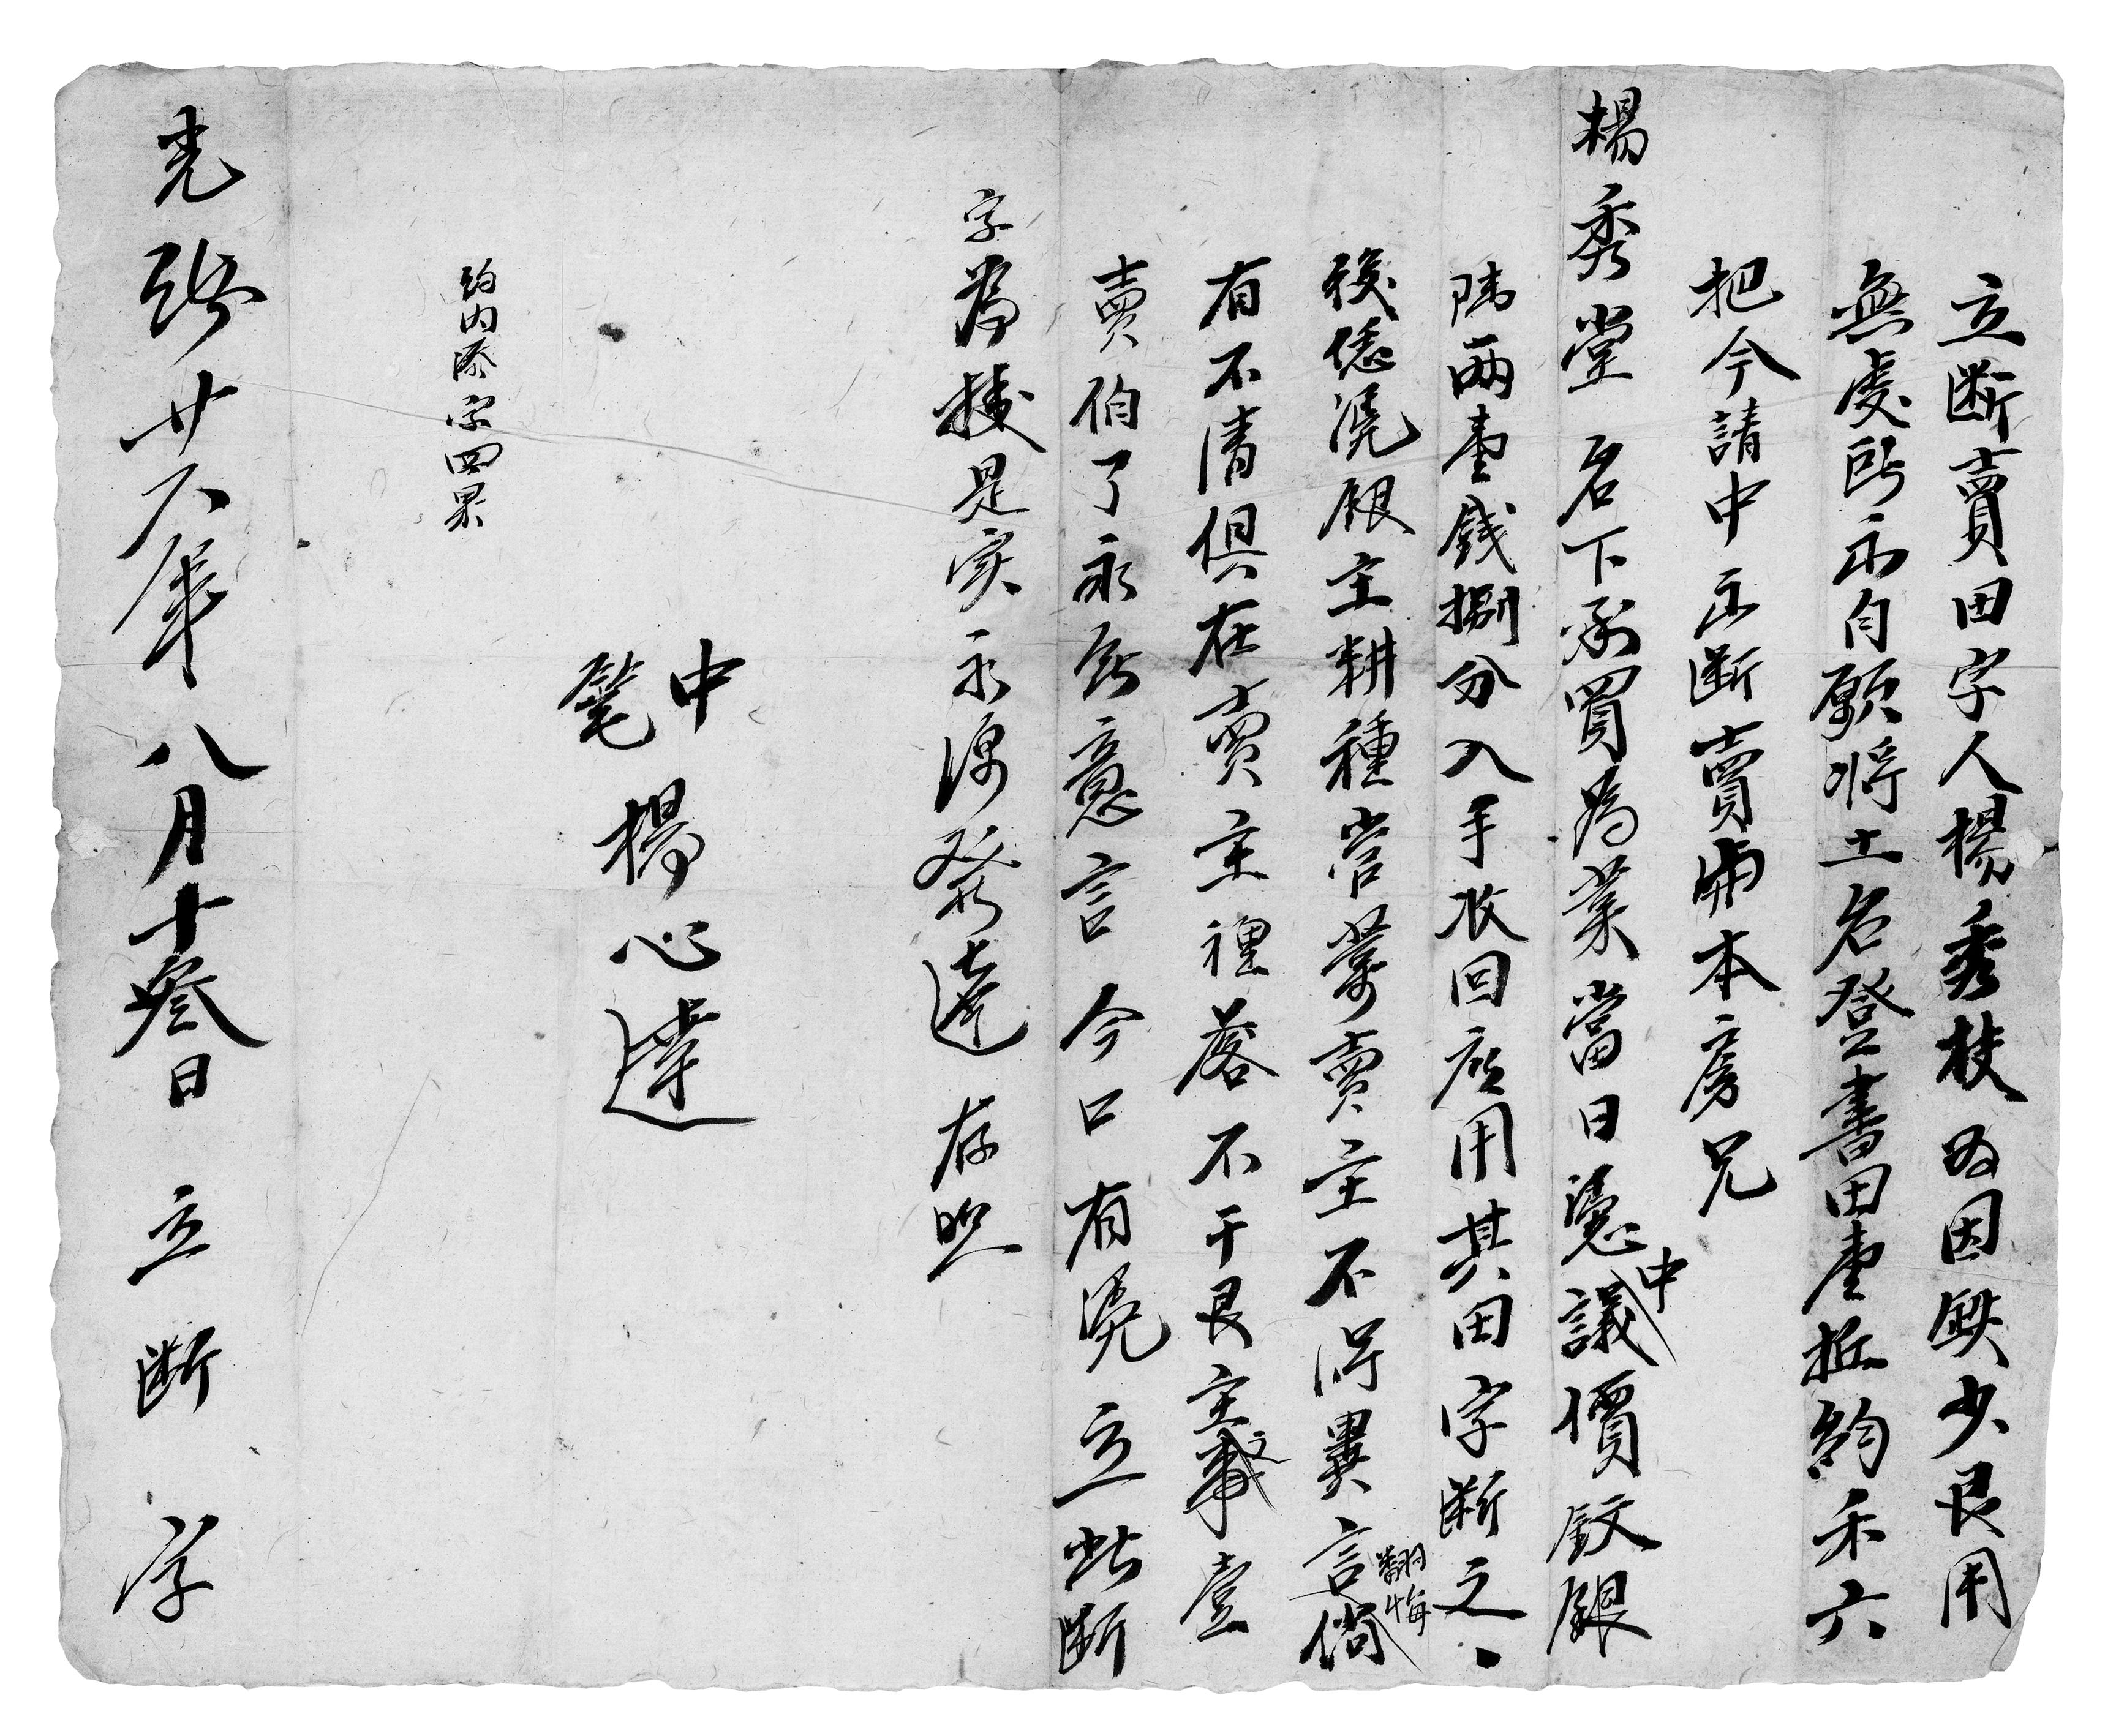 立断賣田字人楊秀枝為因缺少艮用
無處所出自願將土名登書田壹坵約禾六
把今請中出断賣與本房兄
楊秀堂名下承買為業當日憑中議價紋銀
陆両壹錢捌分入手收回应用其田字断之、
後憑銀主耕種管業賣主不得異言翻悔倘
有不清俱在賣主裡落不干艮主之事壹
賣伯了永無意言今口有憑立此断
字為據是实永遠發達存照
中
筆楊心達
約内添字四果
光緒廿六年八月十叁日立断字